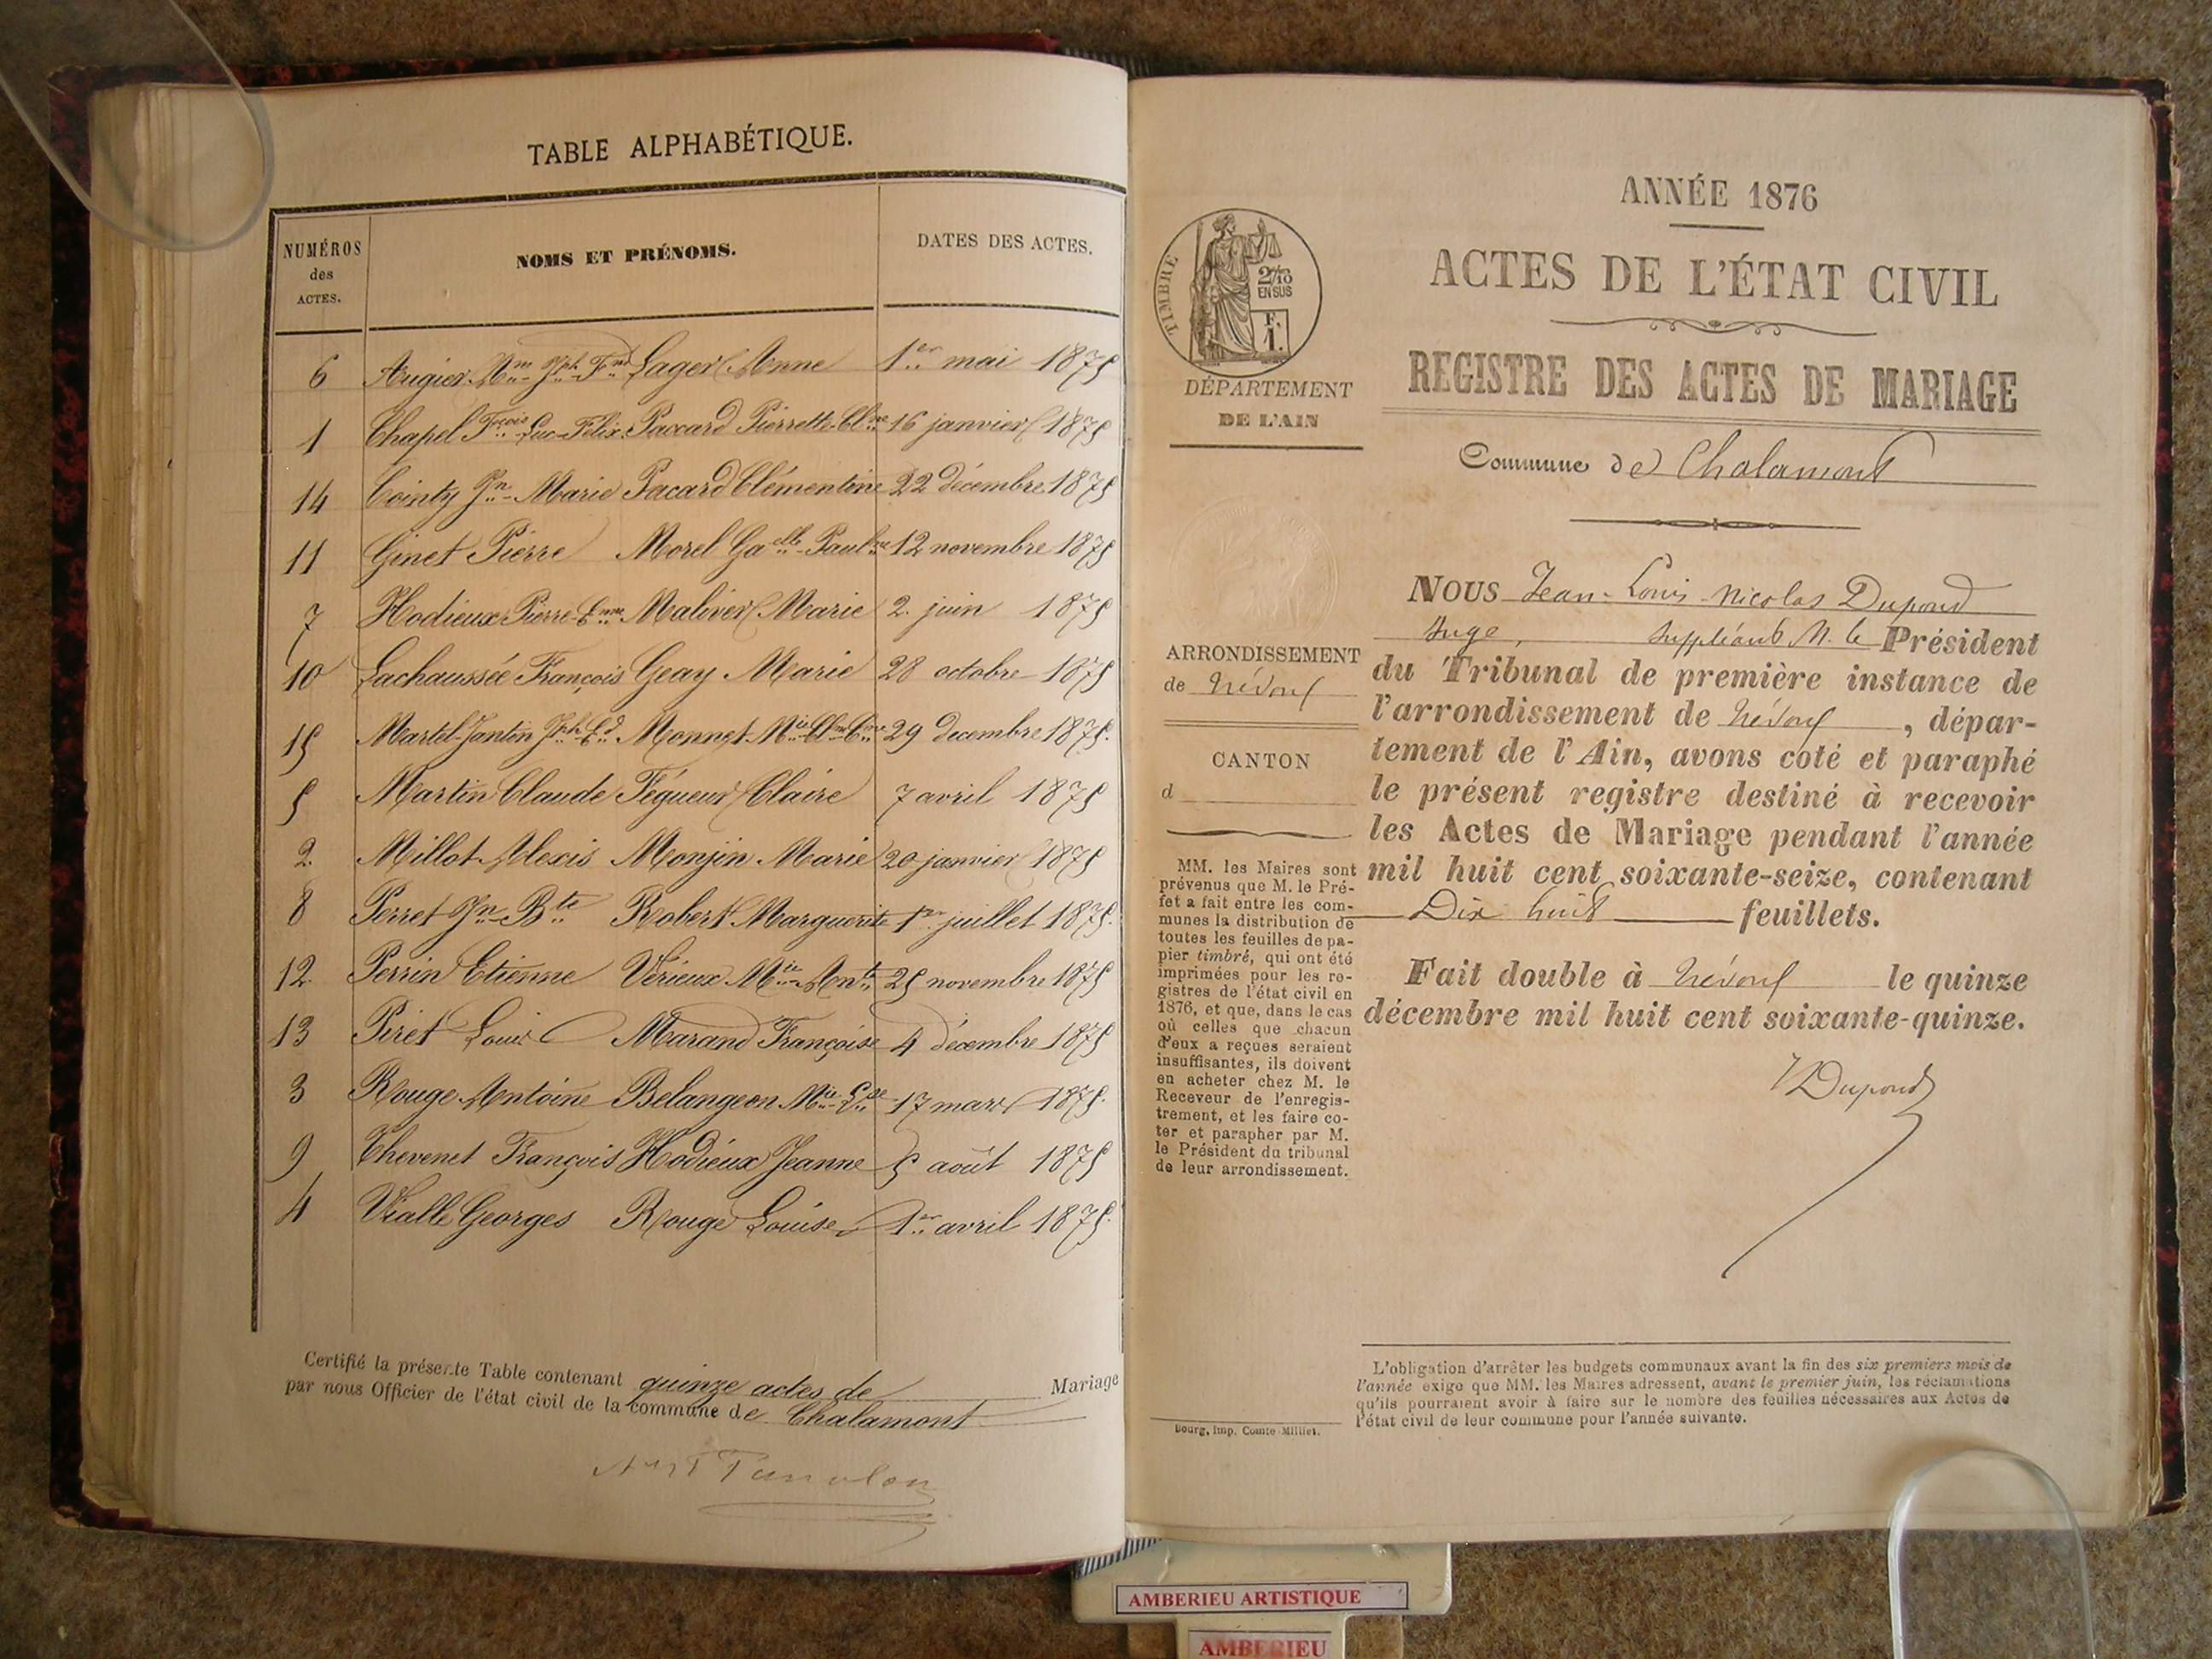 TABLE ALPHABÉTIQUE.
NUMÉROS des ACTES.
NOMS ET PRÉNOMS.
DATES DES ACTES.
6 Augier Ane Jph Fnd Lager Anne 1er mai 1875
1 Chapel Fçois Luc-Félix Paccard Pierrette-Clne 16 janvier 1875
14 Cointy Jn-Marie Pacard Clémentine 22 décembre 1875
11 Ginet Pierre Morel Gaelle-Pauline 12 novembre 1875
7 Hodieux Pierre-Enne Maliver Marie 2 juin 1875
10 Lachaussée François Geay Marie 28 octobre 1875
15 Martel-Jantin Jph-Ed Monnet Mie 29 décembre 1875.
5 Martin Claude Fégueur Claire 7 avril 1875
2. Millot Alexis Monjin Marie 20 janvier 1875
8 Perret Jn-Bte Robert Marguerite 1er juillet 1875.
12. Perrin Etienne Vérieux Mie-Antte 25 novembre 1875
13 Piret Louis Marand Françoise 4 décembre 1875
3 Rouge Antoine Belangeon Mie-Lse 17 mars 1875.
9 Thevenet François Hodieux Jeanne 5 août 1875
4 Vialle Georges Rouge Louise 1er avril 1875.
Certifié la présente Table contenant quinze actes de Mariage
par nous Officier de l'état civil de la commune de Chalamont
TIMBRE
2/10
EN SUS
F.
1.
DÉPARTEMENT
DE L'AIN
ARRONDISSEMENT
de Trévoux
CANTON
d
MM. les Maires sont
prévenus que M. le Pré-
fet a fait entre les com-
munes la distribution de
toutes les feuilles de pa-
pier timbré, qui ont été
imprimées pour les re-
gistres de l'état civil en
1876, et que, dans le cas
où celles que chacun
d'eux a reçues seraient
insuffisantes, ils doivent
en acheter chez M. le
Receveur de l'enregis-
trement, et les faire co-
ter et parapher par M.
le Président du tribunal
de leur arrondissement.
Bourg, imp. Comte-Milliet.
ANNÉE 1876
ACTES DE L'ÉTAT CIVIL
REGISTRE DES ACTES DE MARIAGE
Commune de Chalamont
NOUS Jean-Louis-Nicolas Dupond
Juge, suppléant M. le Président
du Tribunal de première instance de
l'arrondissement de Trévoux, dépar-
tement de l'Ain, avons coté et paraphé
le présent registre destiné à recevoir
les Actes de Mariage pendant l'année
mil huit cent soixante-seize, contenant
Dix huit feuillets.
Fait double à Trévoux le quinze
décembre mil huit cent soixante-quinze.
Dupond
L'obligation d'arrêter les budgets communaux avant la fin des six premiers mois de
l'année exige que MM. les Maires adressent, avant le premier juin, les réclamations
qu'ils pourraient avoir à faire sur le nombre des feuilles nécessaires aux Actes de
l'état civil de leur commune pour l'année suivante.
AMBERIEU ARTISTIQUE
AMBERIEU